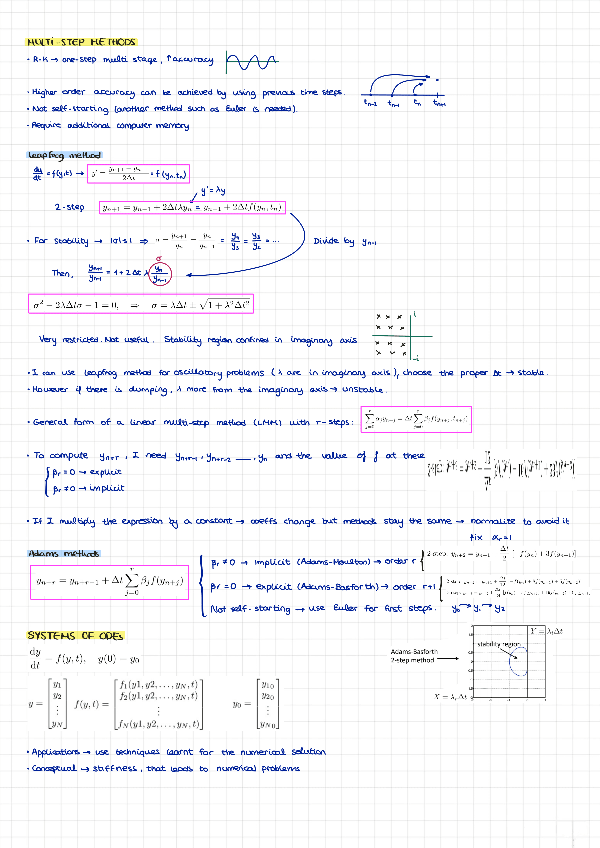 MULTI-STEP METHODS
· R-K → one-step multi stage, ↑ accuracy
· Higher order accuracy can be achieved by using previous time steps.
t_{n-2} t_{n-1} t_n t_{n+1}
· Not self-starting (another method such as Euler is needed).
· Require additional computer memory
Leapfrog method
dy/dt = f(y,t) → y' = (y_{n+1} - y_{n-1})/2Δt = f(y_n, t_n)
y' = λy
2-step y_{n+1} = y_{n-1} + 2Δtλy_n = y_{n-1} + 2Δtf(y_n, t_n)
· For stability → |σ| ≤ 1 ⇒ σ = y_{n+1}/y_n = y_n/y_{n-1} = y_4/y_3 = y_3/y_2 = ... Divide by y_{n-1}
σ
Then, y_{n+1}/y_{n-1} = 1 + 2Δt λ y_n/y_{n-1}
σ² - 2λΔtσ - 1 = 0, ⇒ σ = λΔt ± √(1 + λ²Δt²)
Very restricted. Not useful. Stability region confined in imaginary axis
i
-i
· I can use leapfrog method for oscillatory problems (λ are in imaginary axis), choose the proper Δt → stable.
· However if there is dumping, λ more from the imaginary axis → unstable.
· General form of a linear multi-step method (LMM) with r-steps:
· To compute y_{n+r}, I need y_{n+r-1}, y_{n+r-2} __, y_n and the value of f at these
β_r = 0 → explicit
β_r ≠ 0 → implicit
· If I multiply the expression by a constant → coeffs change but methods stay the same → normalize to avoid it
fix α_r = 1
Adams methods
y_{n+r} = y_{n+r-1} + Δt Σ_{j=0}^{r} β_j f(y_{n+j})
β_r ≠ 0 → implicit (Adams-Moulton) → order r
β_r = 0 → explicit (Adams-Basforth) → order r+1
Not self-starting → use Euler for first steps. y_0 → y_1 → y_2
SYSTEMS OF ODEs
dy/dt = f(y, t), y(0) = y_0
Y = λ_iΔt
stability region
Adams-Basforth
2-step method
X = λ_rΔt
y = [y_1 y_2 ⋮ y_N] f(y, t) = [f_1(y1, y2, ..., y_N, t) f_2(y1, y2, ..., y_N, t) ⋮ f_N(y1, y2, ..., y_N, t)] y_0 = [y_{10} y_{20} ⋮ y_{N0}]
· Applications → use techniques learnt for the numerical solution
· Conceptual → stiffness, that leads to numerical problems